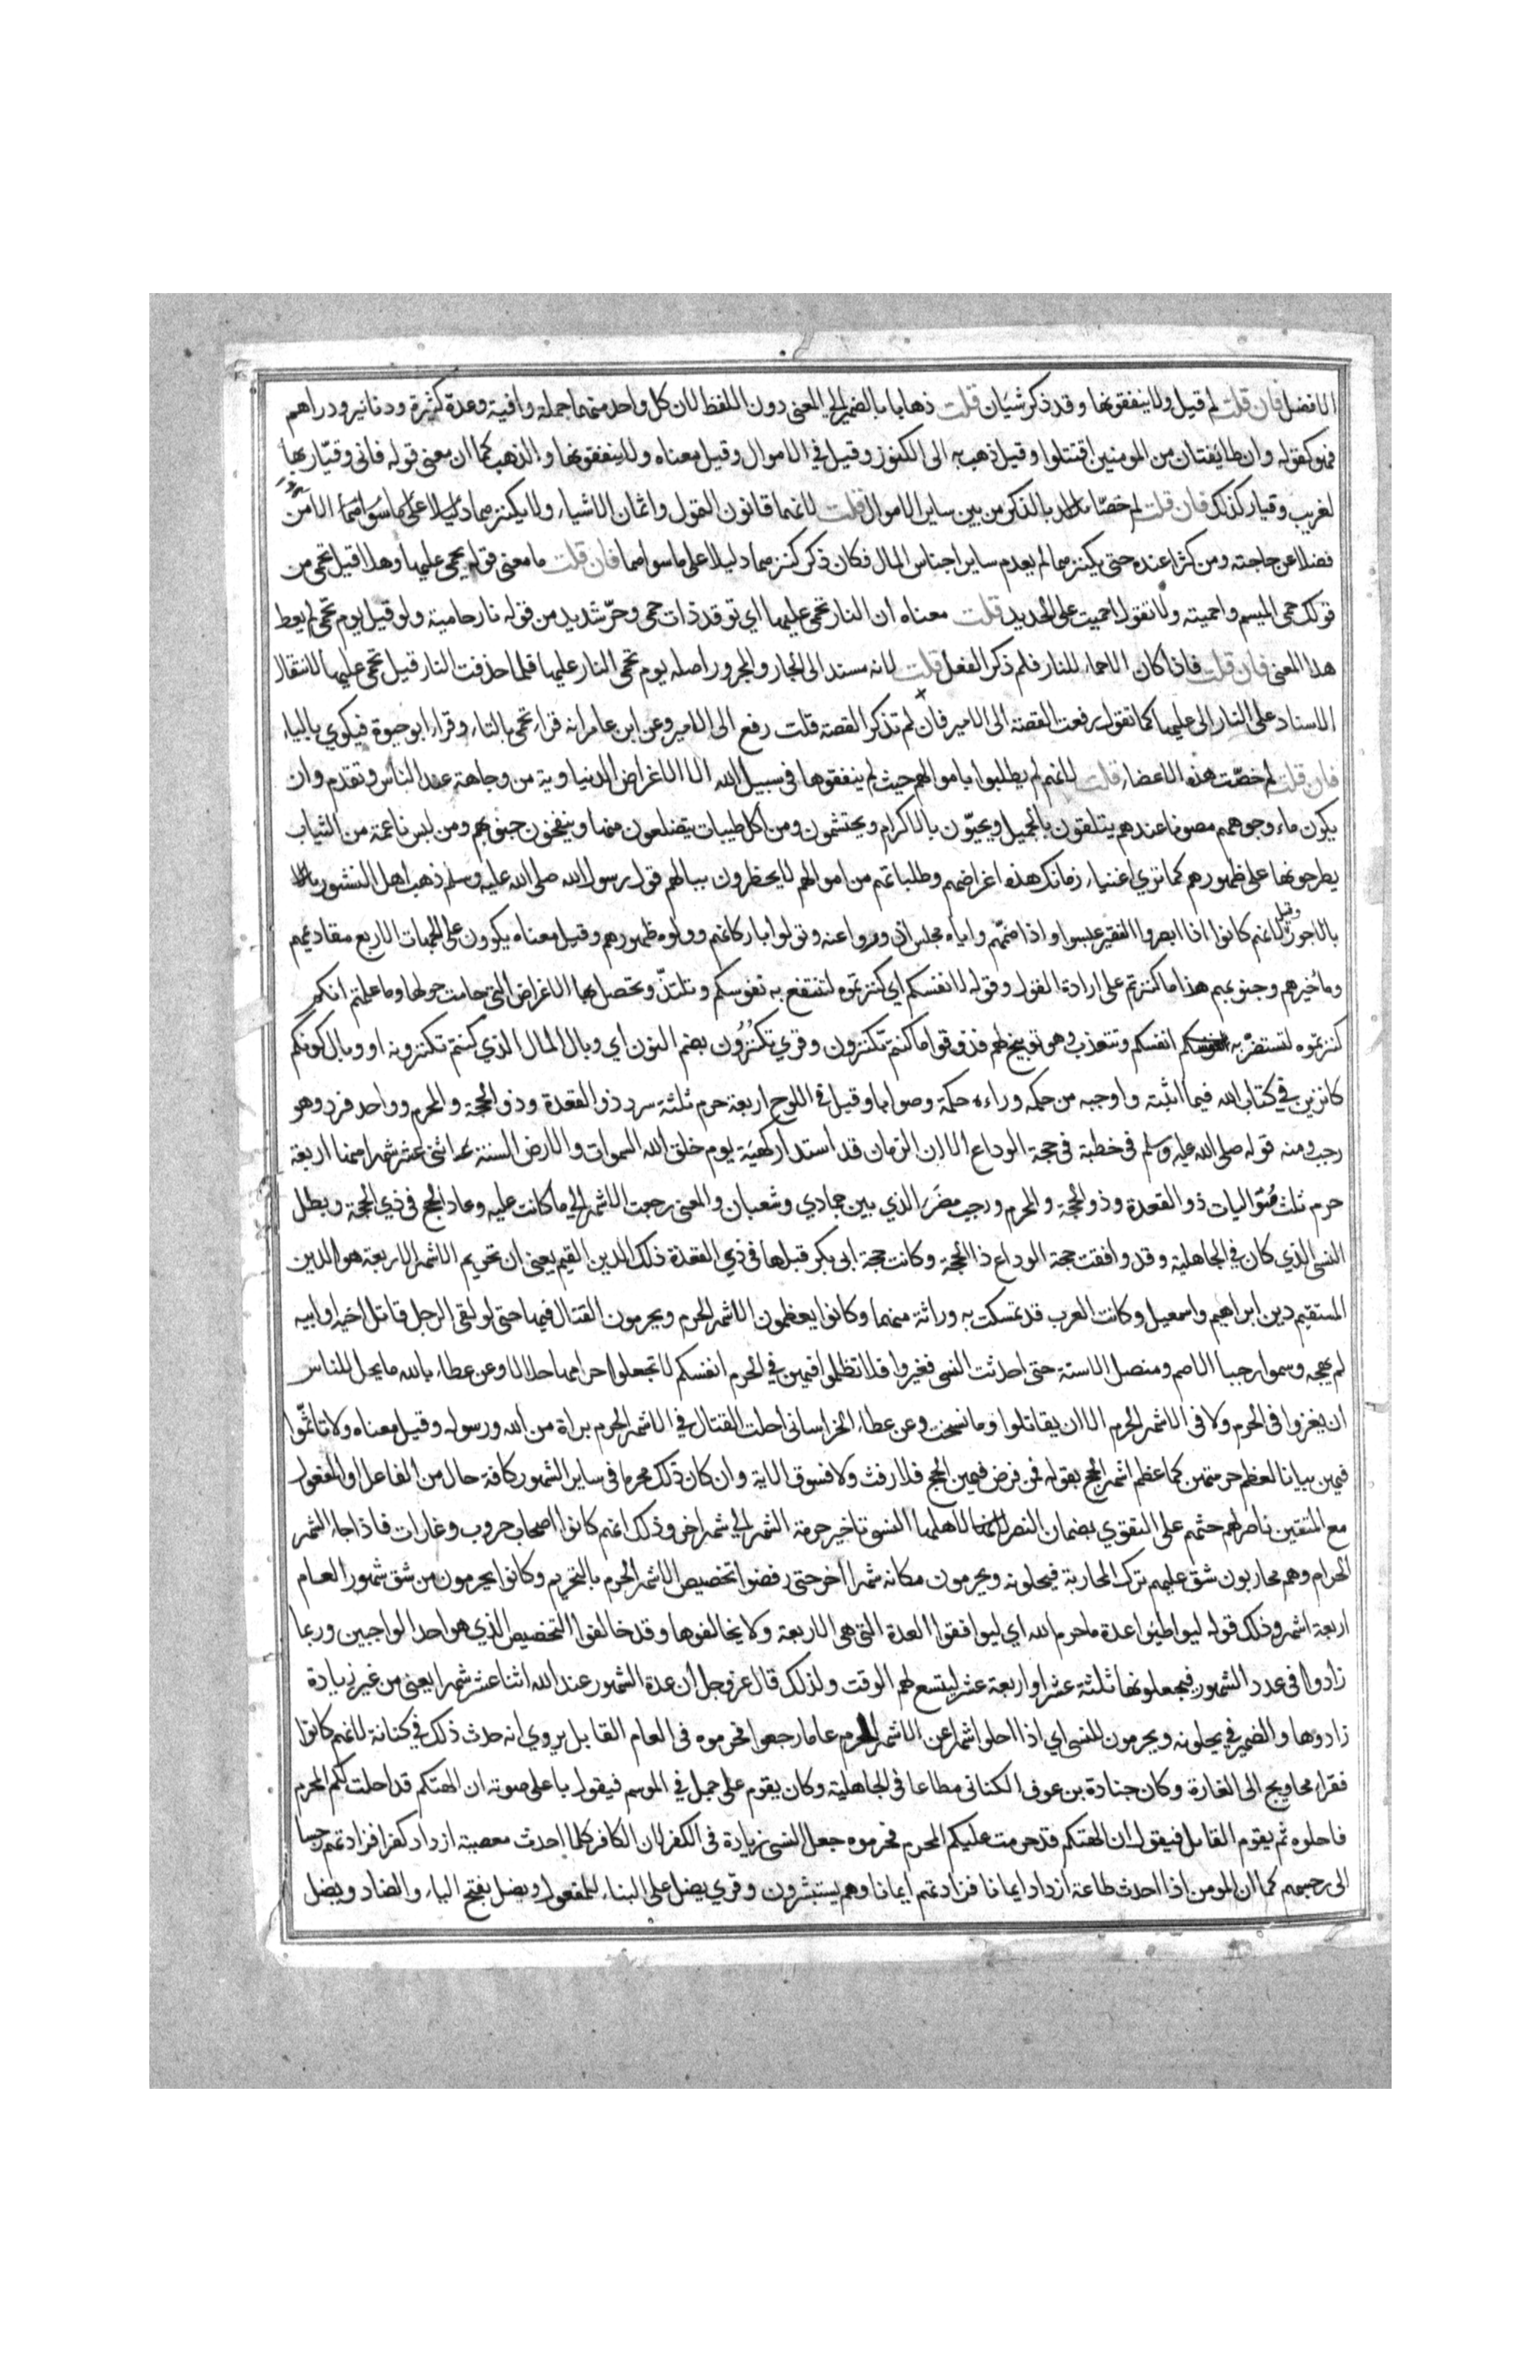 الافضل فان قلت لم قيل ولا ينفقونها وقد ذكر شيان قلت ذهابا بالضمير الى المعنى دون اللفظ لان كل واحد منهما جملة وافية وعدة كثيرة ودنانير ودراهم
فهو كقوله وان طائفتان من المومنين اقتتلوا وقيل ذهب به الى الكنوز وقيل في الاموال وقيل معناه ولا ينفقونها والذهب كما ان معنى قوله فاني وقيار بها
لغريب وقيار كذلك فان قلت لم خصا بالذكر من بين ساير الاموال قلت لانهما قانون التمول واثمان الاشياء ولا يكنزهما الا من
فضلا عن حاجته ومن كثرا عنده حتى يكنزهما لم يعدم ساير اجناس المال فكان ذكر كنزهما دليلا على ما سواهما فان قلت ما معنى قوله يحمى عليها وهلا قيل تحمى من
قولك حمى الميسم واحميته ولا تقول احميت على الحديد قلت معناه ان النار تحمى عليها اي توقد ذات حمى وحر شديد من قوله نار حامية ولو قيل يوم تحمى لم يعط
هذا المعنى فان قلت فاذا كان الاحماء للنار فلم ذكر الفعل قلت لانه مسند الى الجار والمجرور اصله يوم تحمى النار عليها فلما حذفت النار قيل تحمى عليها لانتقال
الاسناد على النار الى عليها كما تقول رفعت القصة الى الامير فان لم تذكر القصة قلت رفع الى الامير وعن ابن عامر انه قراء تحمى بالتاء وقراء ابو حيوة فيكوي بالياء
فان قلت لم خصت هذه الاعضاء قلت لانهم لم يطلبوا باموالهم حيث لم ينفقوها في سبيل الله الا الاغراض الدنياوية من وجاهة عند الناس وتقدم وان
يكون ماء وجوههم مصونا عندهم يتلقون بالجميل ويحيون بالاكرام ويحتشمون ومن اكل طيبات يتضلعون منها وينفخون جنوبهم ومن لبس ناعمة من الثياب
يطرحونها على ظهورهم كما تري اغنياء زمانك هذه اغراضهم وطلباتهم من اموالهم لا يخطرون ببالهم قول رسول الله صلى الله عليه وسلم ذهب اهل الدثور
بالاجور وقيل لانهم كانوا اذا ابصروا الفقير عبسوا واذا ضمهم واياه مجلس ازوروا عنه وتولوا باركانهم وولوه ظهورهم وقيل معناه يكوون على الجهات الاربع مقاديمهم
وماخيرهم وجنوبهم هذا ما كنزتم على ارادة القول وقوله لانفسكم اي كنزتموه لتنتفع به نفوسكم وتلتذ وتحصل بها الاغراض التي حامت حولها وما علمتم انكم
كنزتموه لتستضر به انفسكم وتتعذب وهو توبيخ لهم فذوقوا ما كنتم تكنزون وقري تكنزون بضم النون اي وبال المال الذي كنتم تكنزونه او وبال كونكم
كانزين في كتاب الله فيما اثبته واوجبه من حكمه وراءه حكمة وصوابا وقيل في اللوح اربعة حرم ثلثة سرد ذو القعدة وذو الحجة والمحرم وواحد فرد وهو
رجب ومنه قوله صلى الله عليه وسلم في خطبة في حجة الوداع الا ان الزمان قد استدار كهيئة يوم خلق الله السموات والارض السنة اثنى عشر شهرا منها اربعة
حرم ثلث متواليات ذو القعدة وذو الحجة والمحرم ورجب مضر الذي بين جمادي وشعبان والمعنى رجعت الاشهر الى ما كانت عليه وعاد الحج في ذي الحجة وبطل
النسى الذي كان في الجاهلية وقد وافقت حجة الوداع ذا الحجة وكانت حجة ابى بكر قبلها في ذي القعدة ذلك الدين القيم يعنى ان تحريم الاشهر الاربعة هو الدين
المستقيم دين ابراهيم واسمعيل وكانت العرب قد تمسكت به وراثة منهما وكانوا يعظمون الاشهر الحرم ويحرمون القتال فيها حتى لو لقى الرجل قاتل اخيه او ابيه
لم يهجه وسموا رجبا الاصم ومنصل الاسنة حتى احدثت النسى فغيروا فلا تظلموا فيهن في الحرم انفسكم لا تجعلوا حرامها حلالا وعن عطاء بالله ما يحل للناس
ان يغزوا في الحرم ولا في الاشهر الحرم الا ان يقاتلوا وما نسخت وعن عطاء الخراسانى احلت القتال في الاشهر الحرم براة من الله ورسوله وقيل معناه ولا تاثموا
فيهن بيانا لعظم حرمتهن كما عظم اشهر الحج بقوله فمن فرض فيهن الحج فلا رفث ولا فسوق الاية وان كان ذلك محرما في ساير الشهور كافة حال من الفاعل او المفعول
مع المتقين ناصر لهم حثهم على التقوي بضمان النصر لاهلها النسو تاخير حرمة الشهر الى شهر اخر وذلك انهم كانوا اصحاب حروب وغارات فاذا جاء الشهر
الحرام وهم محاربون شق عليهم ترك المحاربة فيحلونه ويحرمون مكانه شهرا اخر حتى رفضوا تخصيص الاشهر الحرم بالتحريم وكانوا يحرمون من شق شهور العام
اربعة اشهر وذلك قوله ليواطئوا عدة ما حرم الله اي ليوافقوا العدة التي هى الاربعة ولا يخالفوها وقد خالفوا التخصيص الذي هو احد الواجبين وربما
زادوا في عدد الشهور فيجعلونها ثلثة عشر او اربعة عشر ليتسع لهم الوقت ولذلك قال عز وجل ان عدة الشهور عند الله اثنا عشر شهرا يعنى من غير زيادة
زادوها والضمير في يحلونه ويحرمون للنسى اي اذا احلوا شهرا عن الاشهر الحرم عاما رجعوا فحرموه في العام القابل يروي انه حدث ذلك في كنانة لانهم كانوا
فقراء محاويج الى الغارة وكان جنادة بن عوف الكنانى مطاعا في الجاهلية وكان يقوم على جمل في الموسم فيقول باعلى صوته ان الهتكم قد احلت لكم المحرم
فاحلوه ثم يقوم القابل فيقول ان الهتكم قد حرمت عليكم المحرم فحرموه جعل النسى زيادة في الكفر لان الكافر كلما احدث معصية ازداد كفرا فزادتهم رجسا
الى رجسهم كما ان المومن اذا احدث طاعة ازداد ايمانا فزادتهم ايمانا وهم يستبشرون وقري يضل على البناء للمفعول ويضل بفتح الياء والضاد ويضل